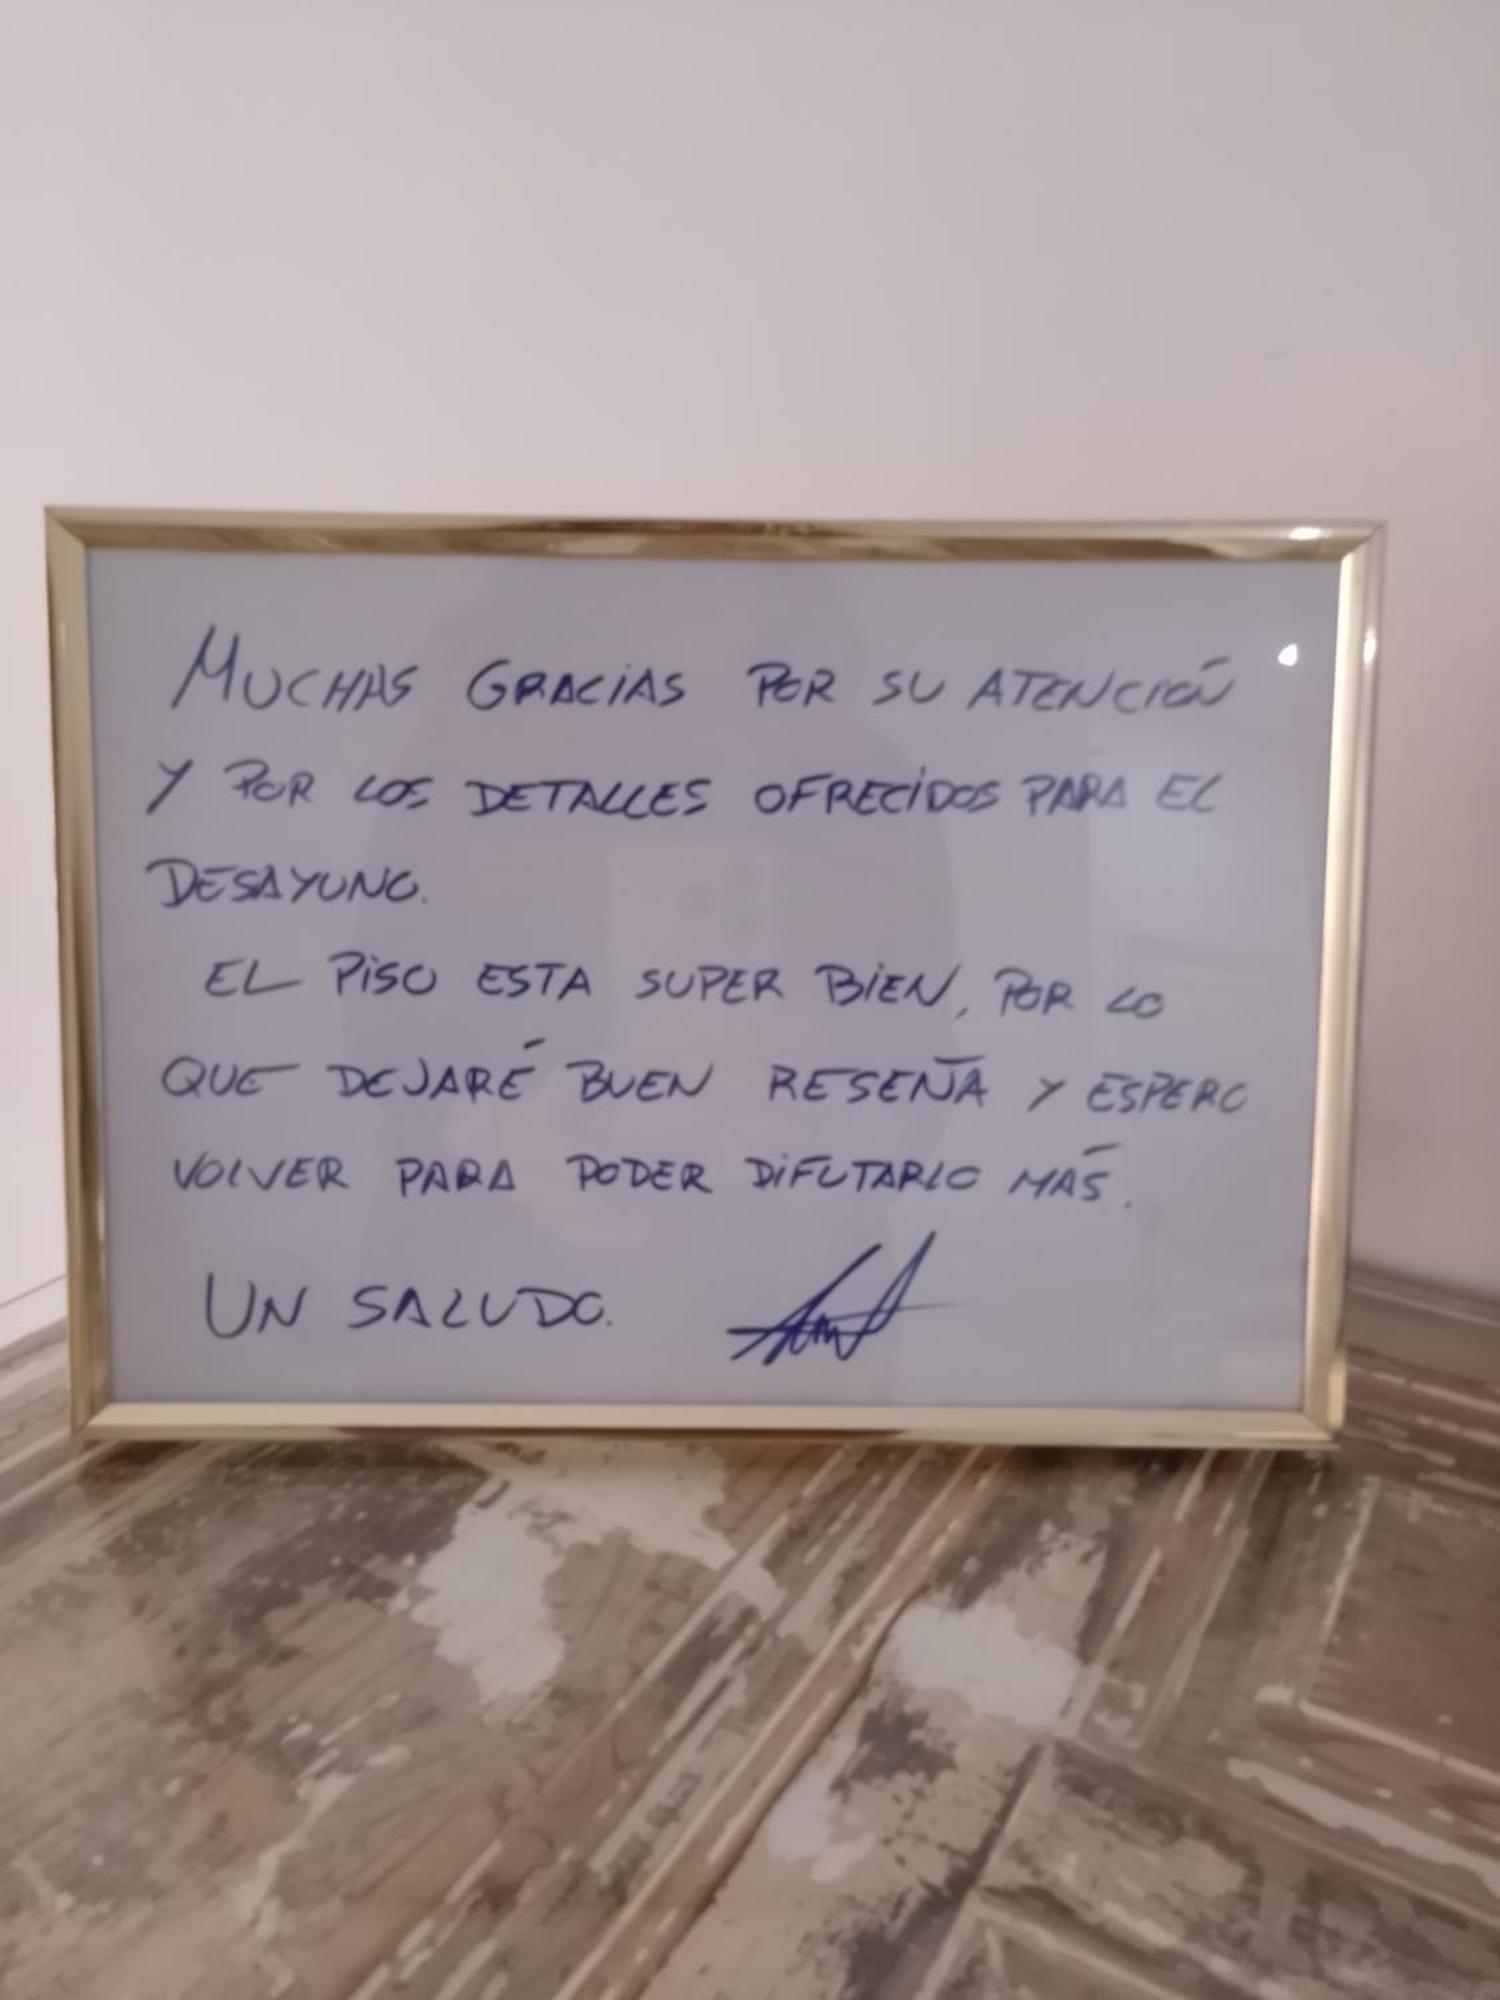 MUCHAS GRACIAS POR SU ATENCIÓN
Y POR LOS DETALLES OFRECIDOS PARA EL
DESAYUNO.
EL PISO ESTA SUPER BIEN, POR LO
QUE DEJARÉ BUEN RESEÑA Y ESPERO
VOLVER PARA PODER DIFUTARLO MÁS.
UN SALUDO.